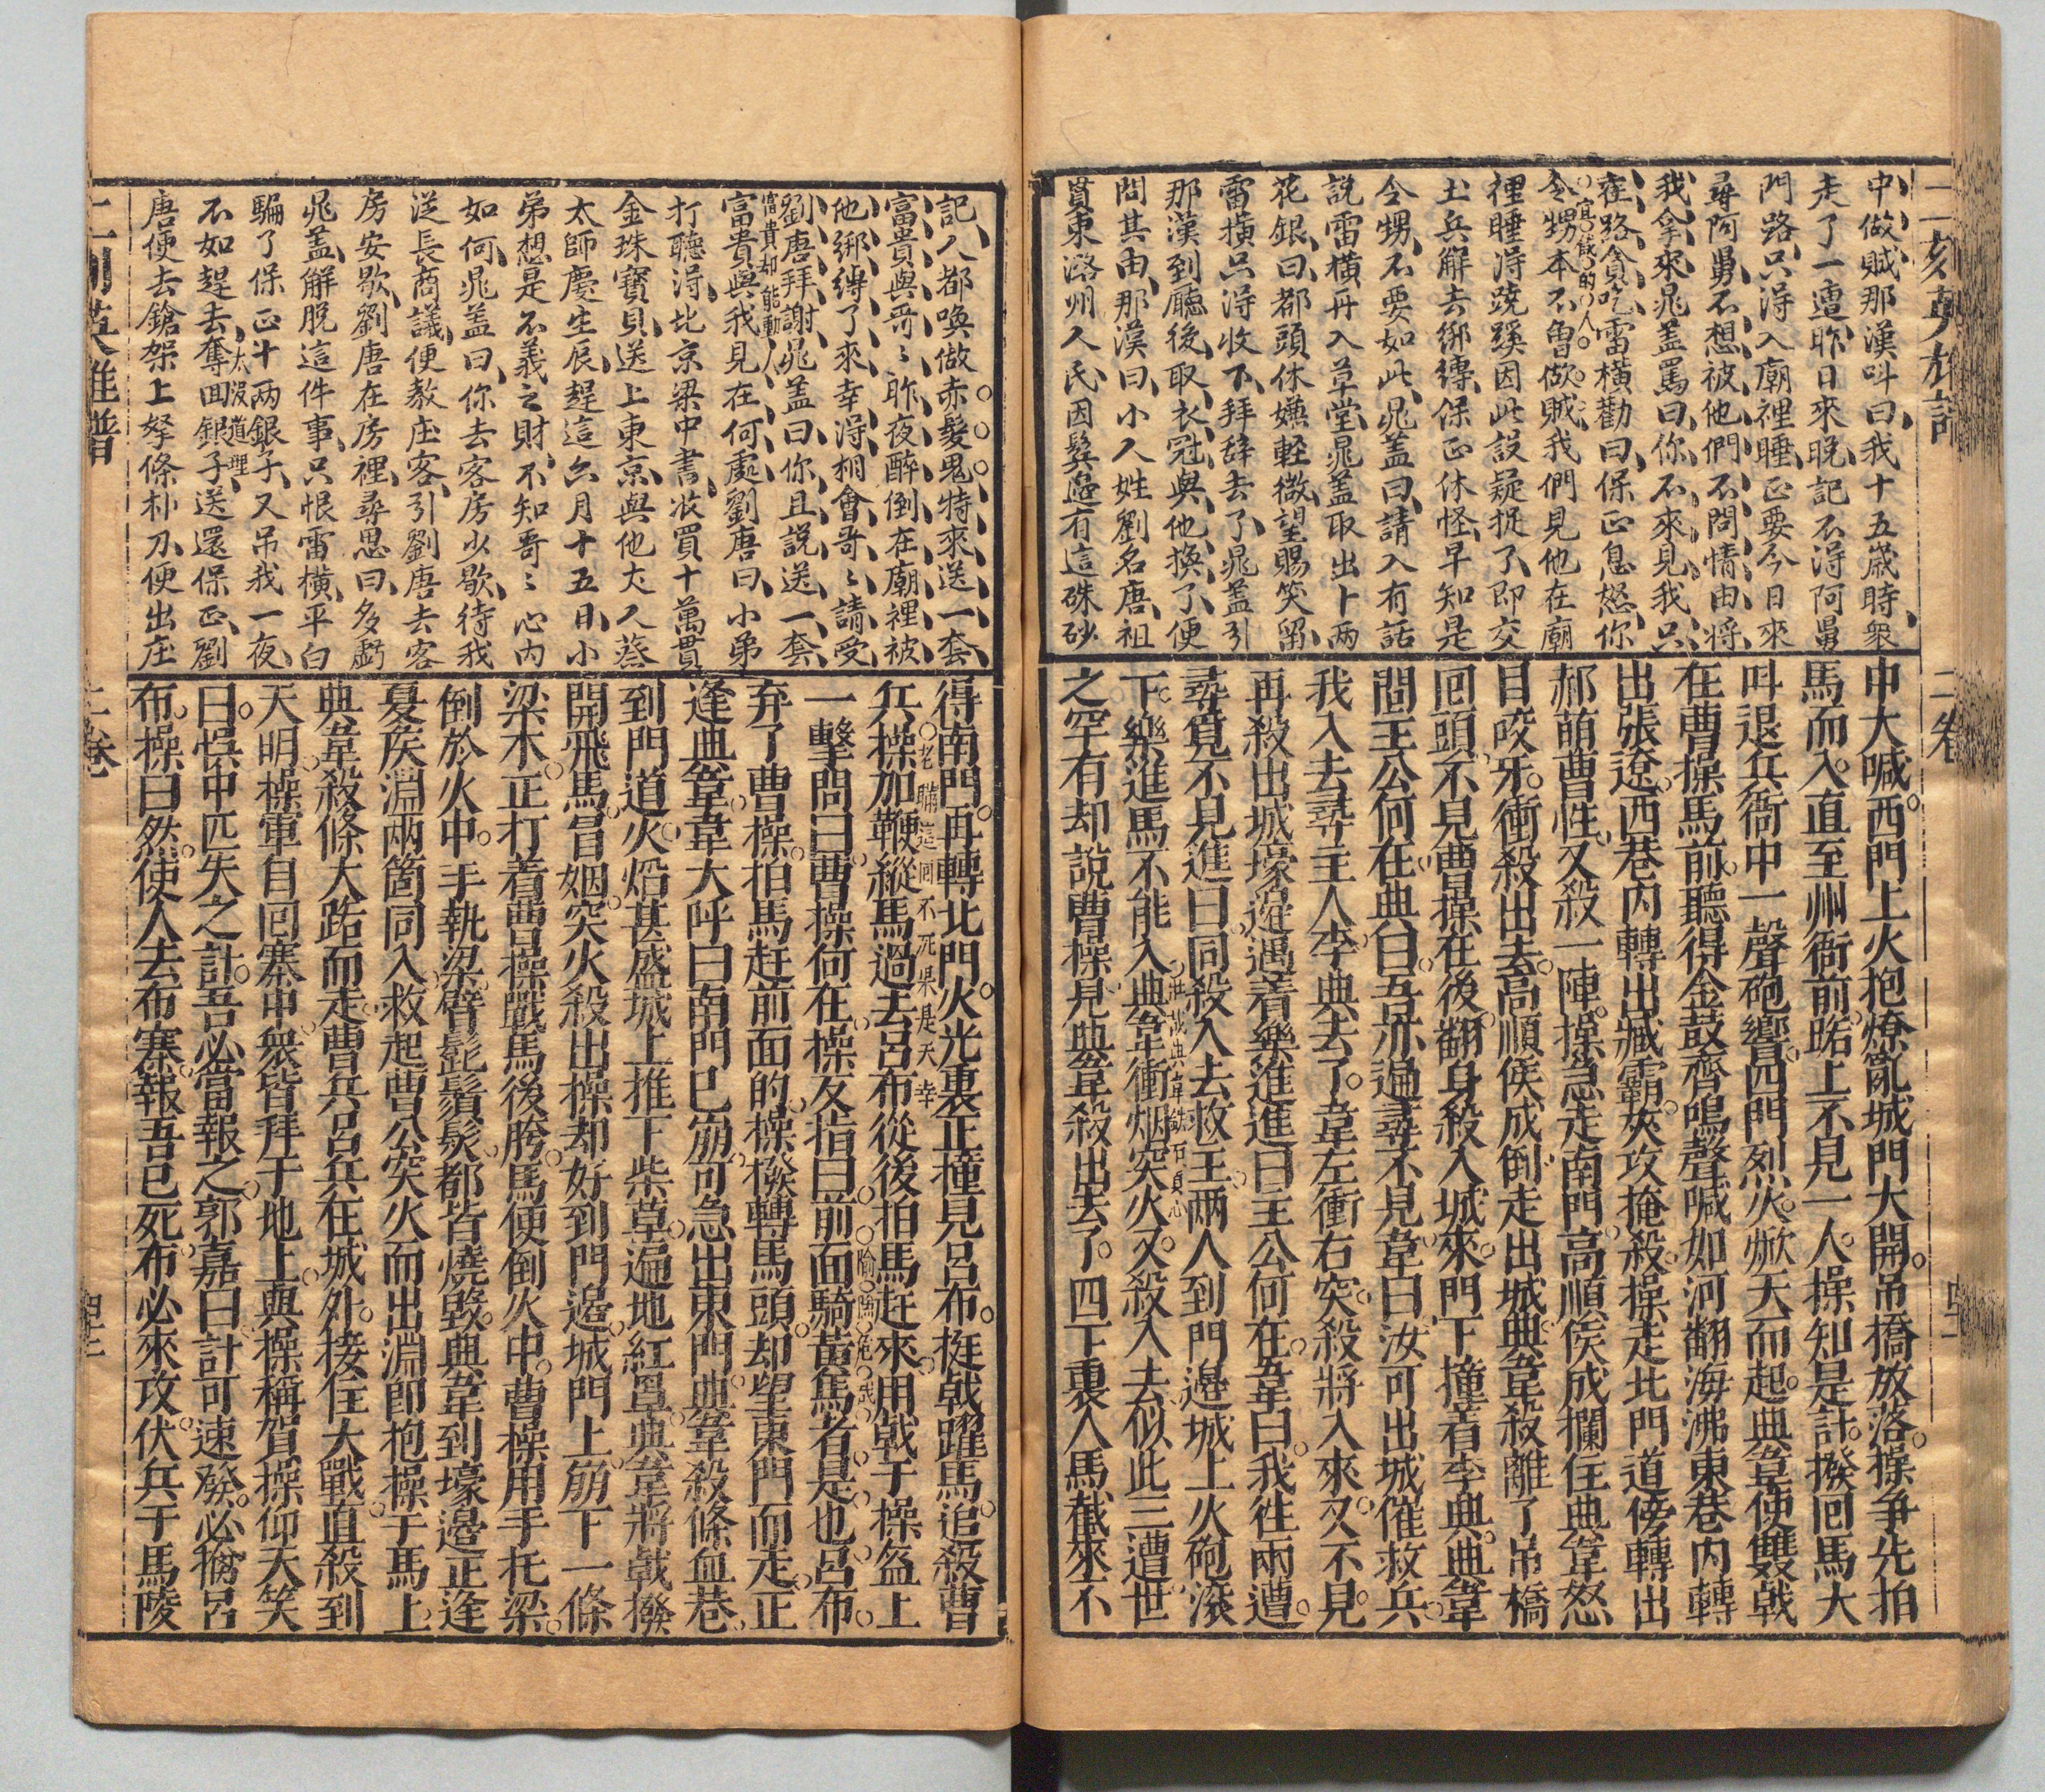 二刻英雄譜
二卷
中做賊那漢叫曰我十五歲時衆
走了一遭昨日來晚記不得阿舅
門路只得入廟裡睡正要今日來
尋阿舅不想被他們不問情由將
我拿來晁蓋罵曰你不來見我只
在路貪吃雷橫勸曰保正息怒你
令甥本不曾做賊我們見他在廟
裡睡得蹺蹊因此誤疑捉了即交
土兵解去綁縛保正休怪早知是
令甥不要如此晁蓋曰請入有話
說雷橫再入草堂晁蓋取出十兩
花銀曰都頭休嫌輕微望賜笑留
雷橫只得收下拜辭去了晁蓋引
那漢到廳後取衣冠與他換了便
問其由那漢曰小人姓劉名唐祖
貫東潞州人民因鬂邊有這硃砂
中大喊西門上火抱燎亂城門大開吊橋放落操爭先拍
馬而入直至州衙前路上不見一人操知是計撥回馬大
叫退兵衙中一聲砲響四門烈火掀天而起典韋使雙戟
在曹操馬前聽得金鼓齊鳴聲喊如河翻海沸東巷內轉
出張遼西巷內轉出臧霸夾攻掩殺操走北門道傍轉出
郝萌曹性又殺一陣操急走南門高順侯成攔住典韋怒
目咬牙衝殺出去高順侯成倒走出城典韋殺離了吊橋
回頭不見曹操在後翻身殺入城來門下撞着李典典韋
問主公何在典曰吾亦遍尋不見韋曰汝可出城催救兵
我入去尋主人李典去了韋左衝右突殺將入來又不見
再殺出城壕邊遇着樂進進曰主公何在韋曰我徃兩遭
尋覓不見進曰同殺入去救主兩人到門邊城上火砲滾
下樂進馬不能入典韋衝烟突火又殺入去似此三遭世
之罕有却說曹操見典韋殺出去了四下裏人馬截來不
記人都喚做赤髮鬼特來送一套
富貴與哥〻昨夜醉倒在廟裡被
他綁縛了來幸得相會哥〻請受
劉唐拜謝晁蓋曰你且說送一套
富貴却能動人
富貴與我見在何處劉唐曰小弟
打聽得北京梁中書收買十萬貫
金珠寶貝送上東京與他丈人蔡
太師慶生辰趕這六月十五日小
弟想是不義之財不知哥〻心內
如何晁蓋曰你去客房少歇待我
從長商議便教庄客引劉唐去客
房安歇劉唐在房裡尋思曰多虧
晁蓋解脫這件事只恨雷橫平白
騙了保正十兩銀子又吊我一夜
太沒道理
不如趕去奪回銀子送還保正劉
唐便去鎗架上拏條朴刀便出庄
得南門再轉北門火光裏正撞見呂布挺戟躍馬追殺曹
老瞞這回不死果是天幸
兵操加鞭縱馬過去呂布從後拍馬赶來用戟于操盔上
一擊問曰曹操何在操反指曰前面騎黃馬者是也呂布
弃了曹操拍馬赶前面的操撥轉馬頭却望東門而走正
逢典韋韋大呼曰南門已崩可急出東門典韋殺條血巷
到門道火焰甚盛城上推下柴草遍地紅畧典韋將戟撥
開飛馬冒烟突火殺出操却好到門邊城門上崩下一條
梁木正打着曹操戰馬後胯馬便倒火中曹操用手托梁
倒於火中手執梁臂髭鬚髮都皆燒毀典韋到壕邊正逢
夏侯淵兩箇同入救起曹公突火而出淵即抱操于馬上
典韋殺條大路而走曹兵呂兵在城外接住大戰直殺到
天明操軍自回寨中衆皆拜于地上與操稱賀操仰天笑
曰悞中匹夫之計吾必當報之郭嘉曰計可速發必擒呂
布操曰然使人去布寨報吾已死布必來攻伏兵于馬陵
二刻英雄譜
二卷